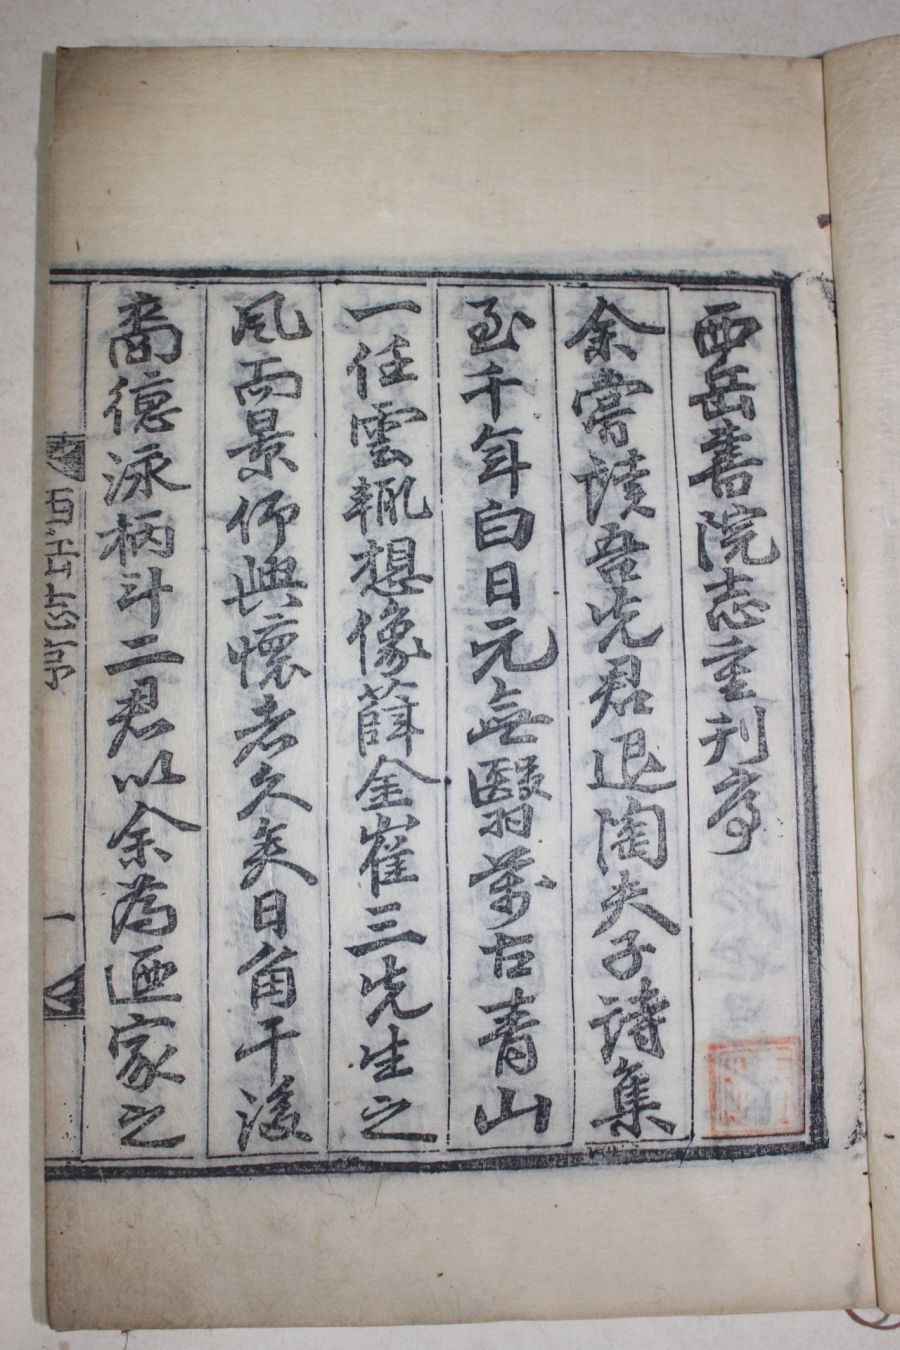 西岳書院志重刊序
余嘗讀吾先君退陶夫子詩集
至千年白日元無翳萬古青山
一任雲輒想像薛金崔三先生之
風而景仰興懷者久矣日角干後
裔德泳柄斗二君以余為迺家之
一